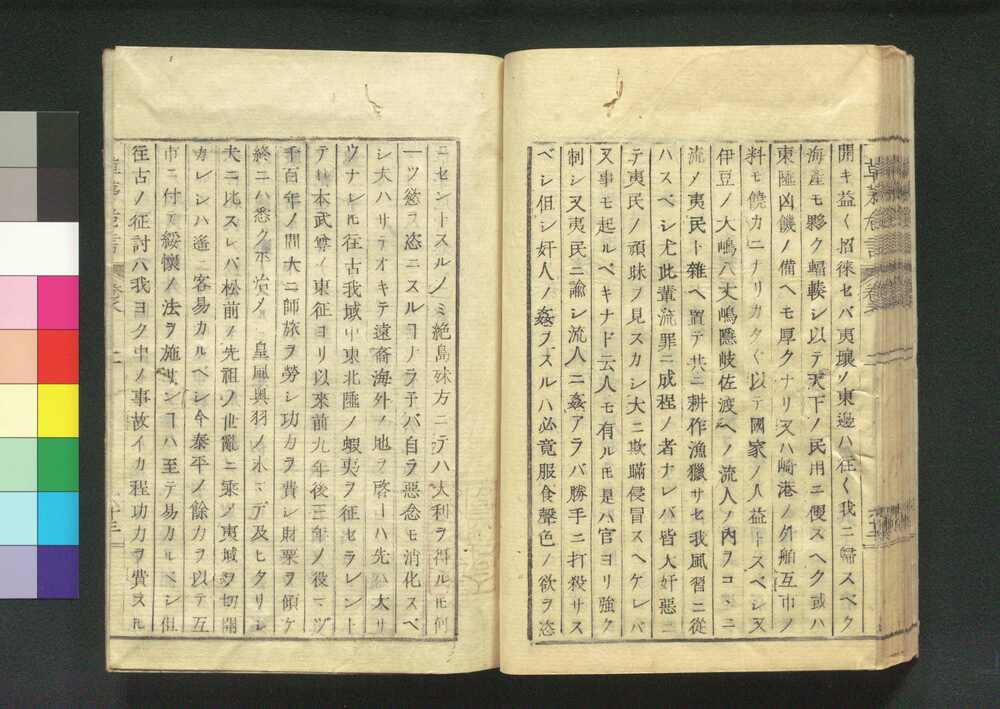 開キ益〱招徠セバ夷壤ノ東邊ハ往〱我ニ歸スベク
海產モ夥ク輻輳シ以テ天下ノ民用ニ便スヘク或ハ
東陲凶饑ノ備ヘモ厚クナリ又ハ崎港ノ外舶互市ノ
料モ饒カニナリカタ〲以テ國家ノ大益トスベシ又
伊豆ノ大嶋八丈嶋隱岐佐渡ヘノ流人ノ內ヲコヽニ
流メ夷民ト雜ヘ置テ共ニ耕作漁獵サセ我風習ニ從
ハスベシ尤此輩流罪ニ成程ノ者ナレバ皆大奸惡ニ
テ夷民ノ頑昧ヲ見スカシ大ニ欺瞞侵冒スヘケレバ
又事モ起ルベキナド云人モ有ルㇳモ是ハ官ヨリ強ク
制シ又夷民ニ諭シ流人ニ姦アラバ勝手ニ打殺サス
ベシ但シ奸人ノ姦ヲスルハ必竟服食聲色ノ欲ヲ恣
ニセントスルノミ絕島殊方ニテハ大利ヲ得ルㇳモ何
一ツ慾ヲ恣ニスルヿナラ子バ自ラ惡念モ消化スベ
シ夫ハサテオキテ遠裔海外ノ地ヲ啓ーハ先ハ太リ
ウナレㇳモ往古我域中東北陲ノ蝦夷ヲ征セラレント
テ日本武尊ノ東征ヨリ以來前九年後三年ノ役マヅ
千百年ノ間大ニ師旅ヲ勞シ功力ヲ費シ財粟ヲ傾ケ
終ニハ悉ク平治メ 皇風奧羽ノ末マデ及ヒタリシ
夫ニ比スレバ松前ノ先祖ノ世亂ニ乘メ夷城ヲ切開
カレシハ遙ニ容易カルベシ今泰平ノ餘力ヲ以テ互
市ニ付メ綏懷ノ法ヲ施サンヿハ至テ易カルベシ但
往古ノ征討ハ我ヨク中ノ事故イカ程功力ヲ費スㇳモ
草茅危言